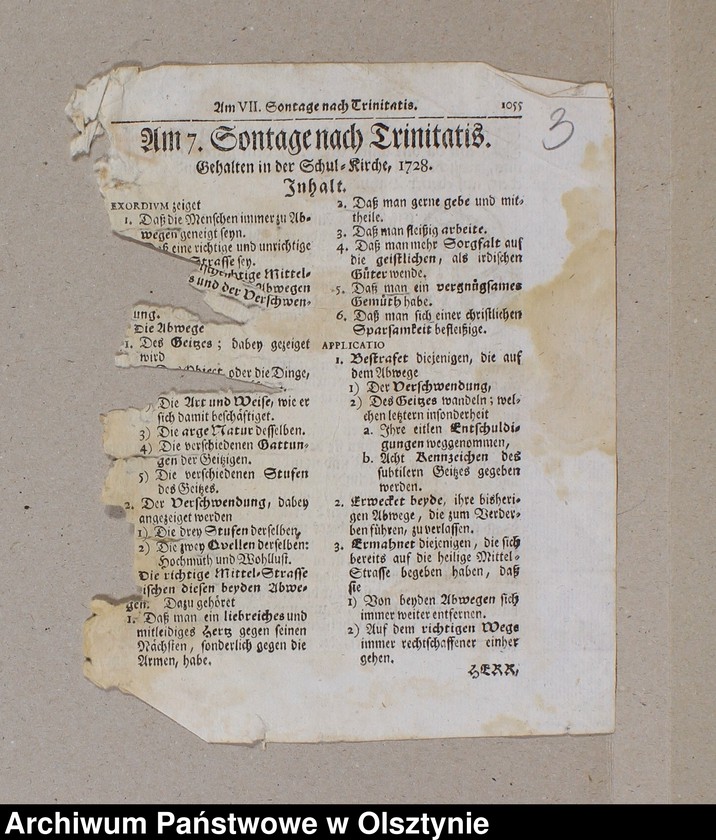 Am VII. Sontage nach Trinitatis. 1055
3
Am 7. Sontage nach Trinitatis.
Gehalten in der Schul-Kirche, 1728.
Inhalt.
EXORDIVM zeiget
1. Daß die Menschen immer zu Ab-
wegen geneigt seyn.
eine richtige und unrichtige
Strasse sey.
richtige Mittel-
Abwegen
und der Verschwen-
ung.
Die Abwege
1. Des Geitzes; dabey gezeiget
wird
Object, oder die Dinge,
Die Art und Weise, wie er
sich damit beschäftiget.
3) Die arge Natur desselben.
4) Die verschiedenen Gattun-
gen der Geitzigen.
5) Die verschiedenen Stufen
des Geitzes.
2. Der Verschwendung, dabey
angezeiget werden
1) Die drey Stufen derselben,
2) Die zwey Qvellen derselben:
Hochmuth und Wohllust.
Die richtige Mittel-Strasse
ischen diesen beyden Abwe-
gen. Dazu gehöret
1. Daß man ein liebreiches und
mitleidiges Hertz gegen seinen
Nächsten, sonderlich gegen die
Armen, habe.
2. Daß man gerne gebe und mit-
theile.
3. Daß man fleißig arbeite.
4. Daß man mehr Sorgfalt auf
die geistlichen, als irdischen
Güter wende.
5. Daß man ein vergnügsames
Gemüth habe.
6. Daß man sich einer christlichen
Sparsamkeit befleißige.
APPLICATIO
1. Bestrafet diejenigen, die auf
dem Abwege
1) Der Verschwendung,
2) Des Geitzes wandeln; wel-
chen letztern insonderheit
a. Ihre eitlen Entschuldi-
gungen weggenommen,
b. Acht Kennzeichen des
subtilern Geitzes gegeben
werden.
2. Erwecket beyde, ihre bisheri-
gen Abwege, die zum Verder-
ben führen, zu verlassen.
3. Ermahnet diejenigen, die sich
bereits auf die heilige Mittel-
Strasse begeben haben, daß
sie
1) Von beyden Abwegen sich
immer weiter entfernen.
2) Auf dem richtigen Wege
immer rechtschaffener einher
gehen.
HERR,
Archiwum Państwowe w Olsztynie